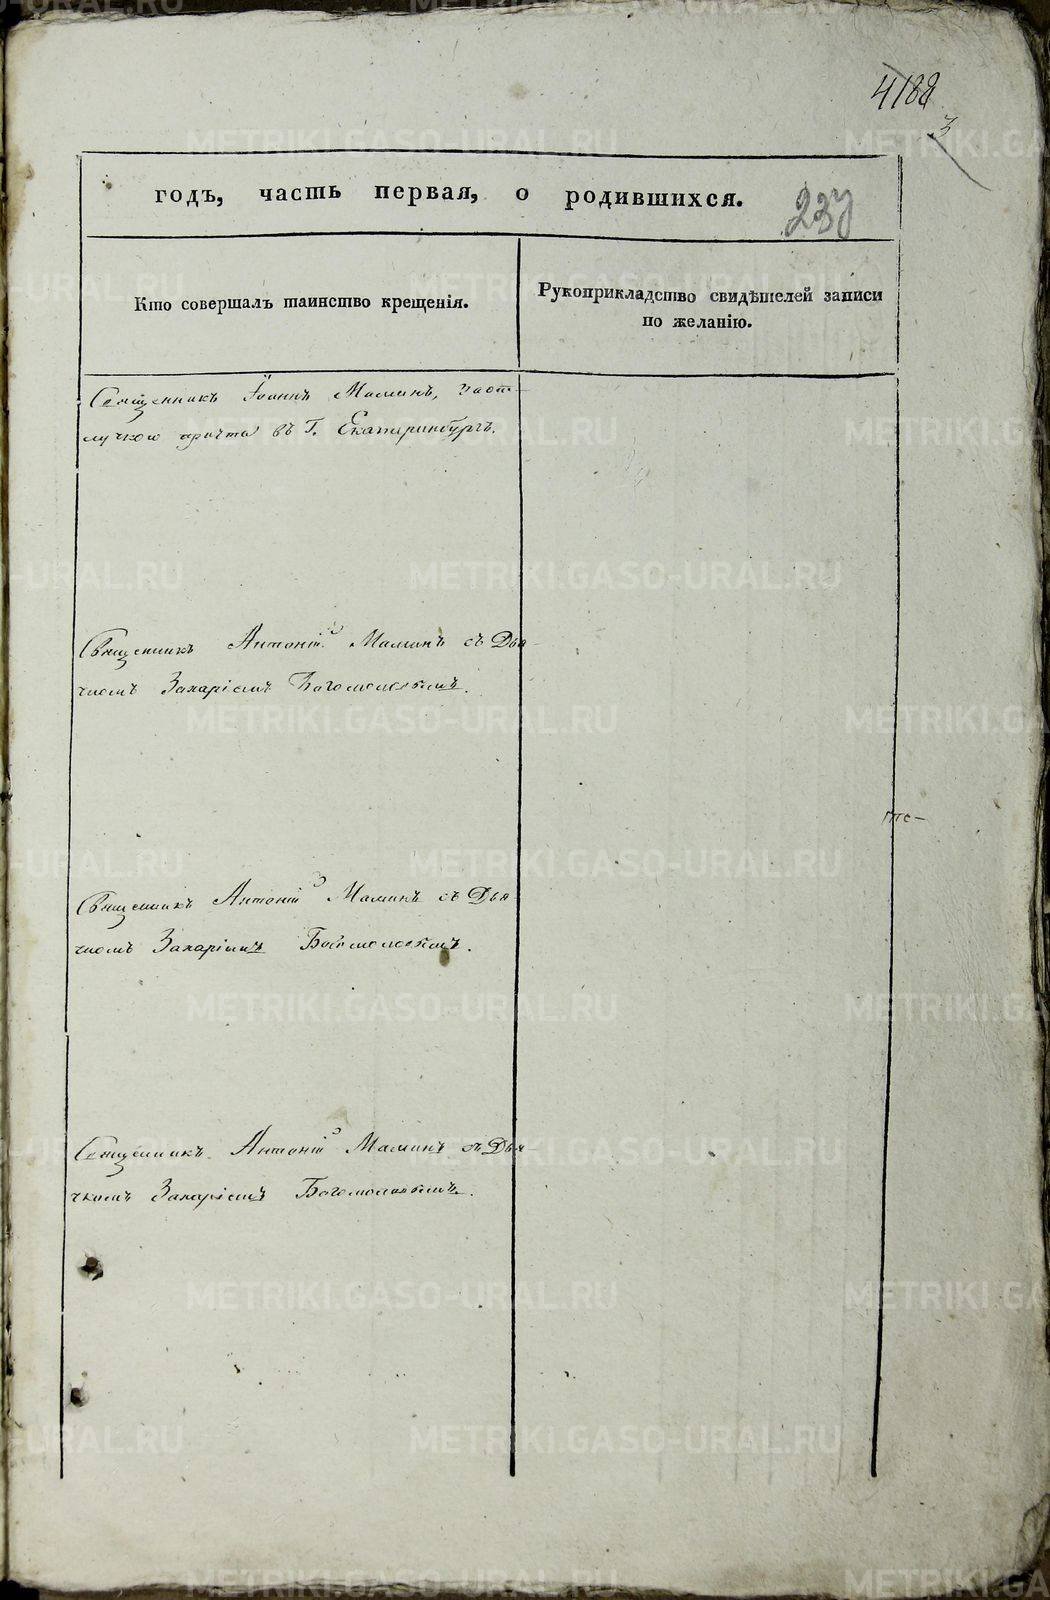 4188
3
годъ, часть первая, о родившихся.
237
Кто совершалъ таинство крещенія.
Рукоприкладство свидѣтелей записи
по желанію.
Священникъ Іоаннъ Маминъ,
причта въ Г. Екатеринбургѣ.
Священникъ Антоній Маминъ съ Дья-
чкомъ Захаріемъ Богомоловымъ.
Священникъ Антоній Маминъ съ Дья
чкомъ Захаріемъ Богомоловымъ.
Священникъ Антоній Маминъ съ Дья
чкомъ Захаріемъ Богомоловымъ.
METRIKI.GASO-URAL.RU